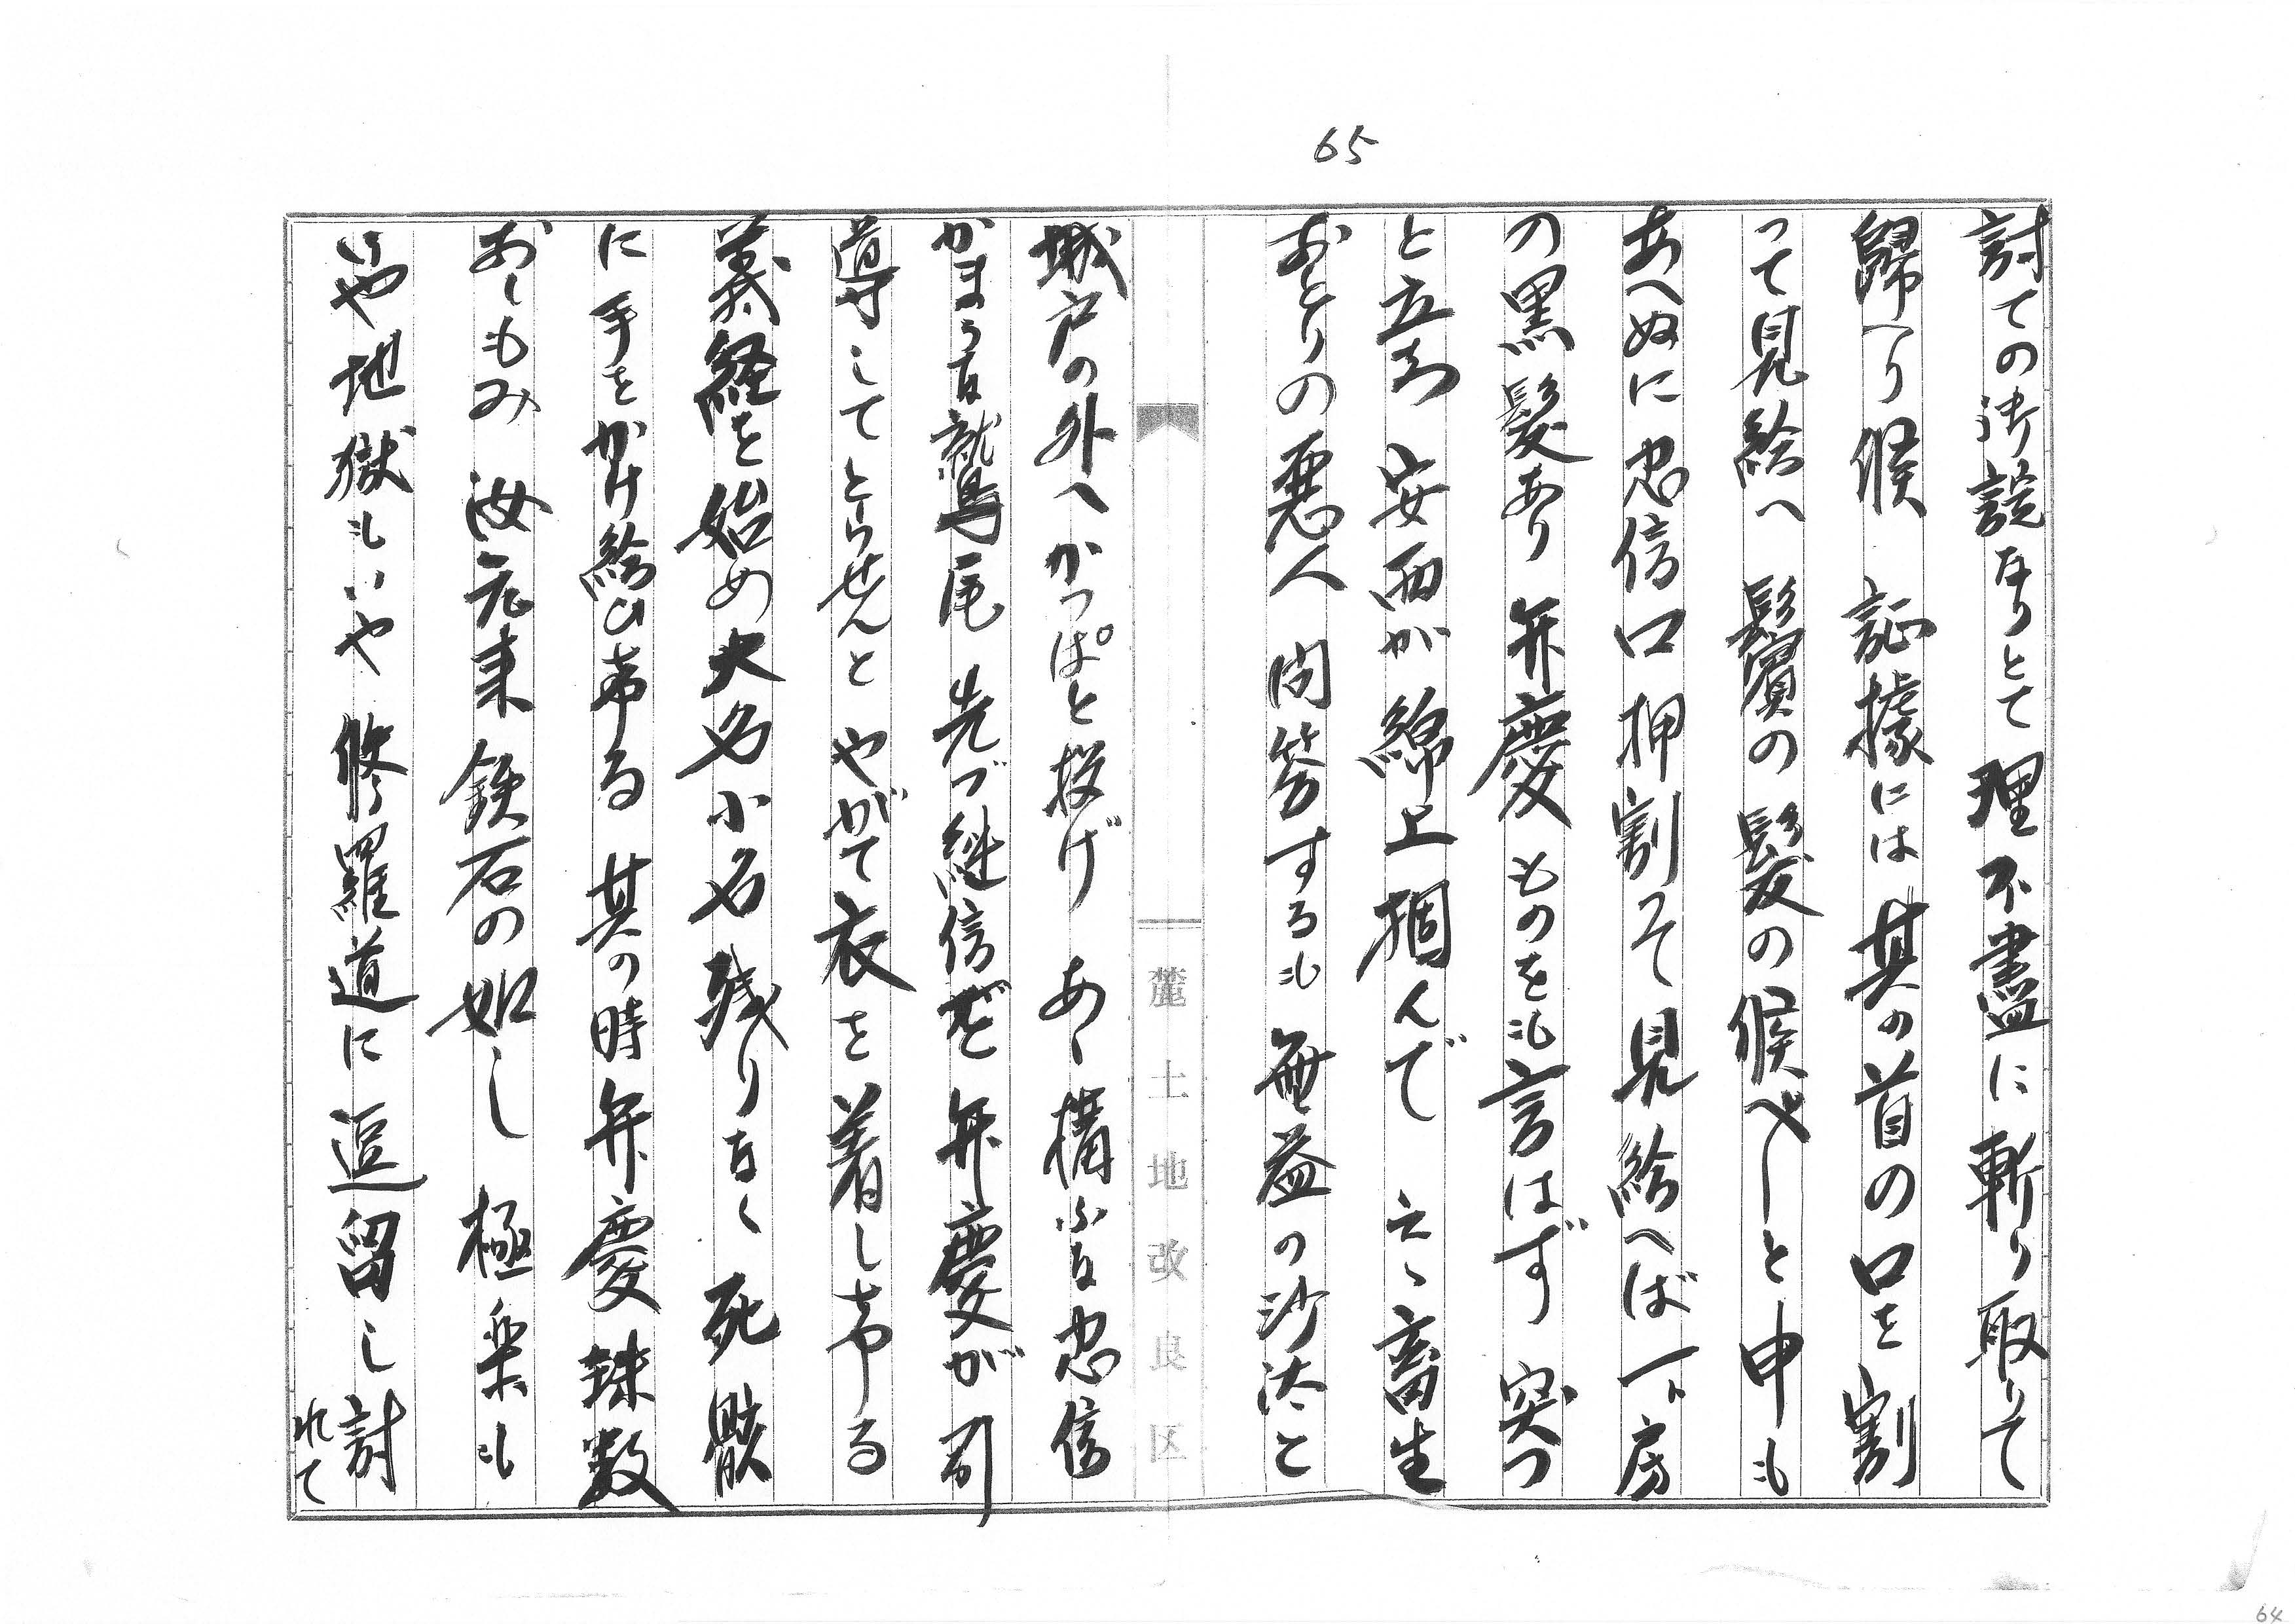 65
討ての御諚なりとて理不盡に斬り取りて
歸へり候 証據には其の首の口を割
って見給へ 鬚鬢の髮の候べしと申も
あへぬに忠信口押割って見給へば一房
の黒髮あり 弁慶ものをも言はず 突つ
と立ち 安西が綿上掴んで 云ヽ畜生
おとりの悪人 問答するも 無益の沙汰と
麓土地改良区
城戸の外へかっぱと投げ あヽ構ふな忠信
かまうな鷲尾 先づ継信を 弁慶が引
導してとらせんと やがて衣を着し奉る
義経を始め大名小名残りなく 死骸
に手をかけ給ひ奉る 其の時弁慶珠数
おしもみ 汝元来鉄石の如し 極楽も
いや地獄もいや 修羅道に逗留し討
れて
64